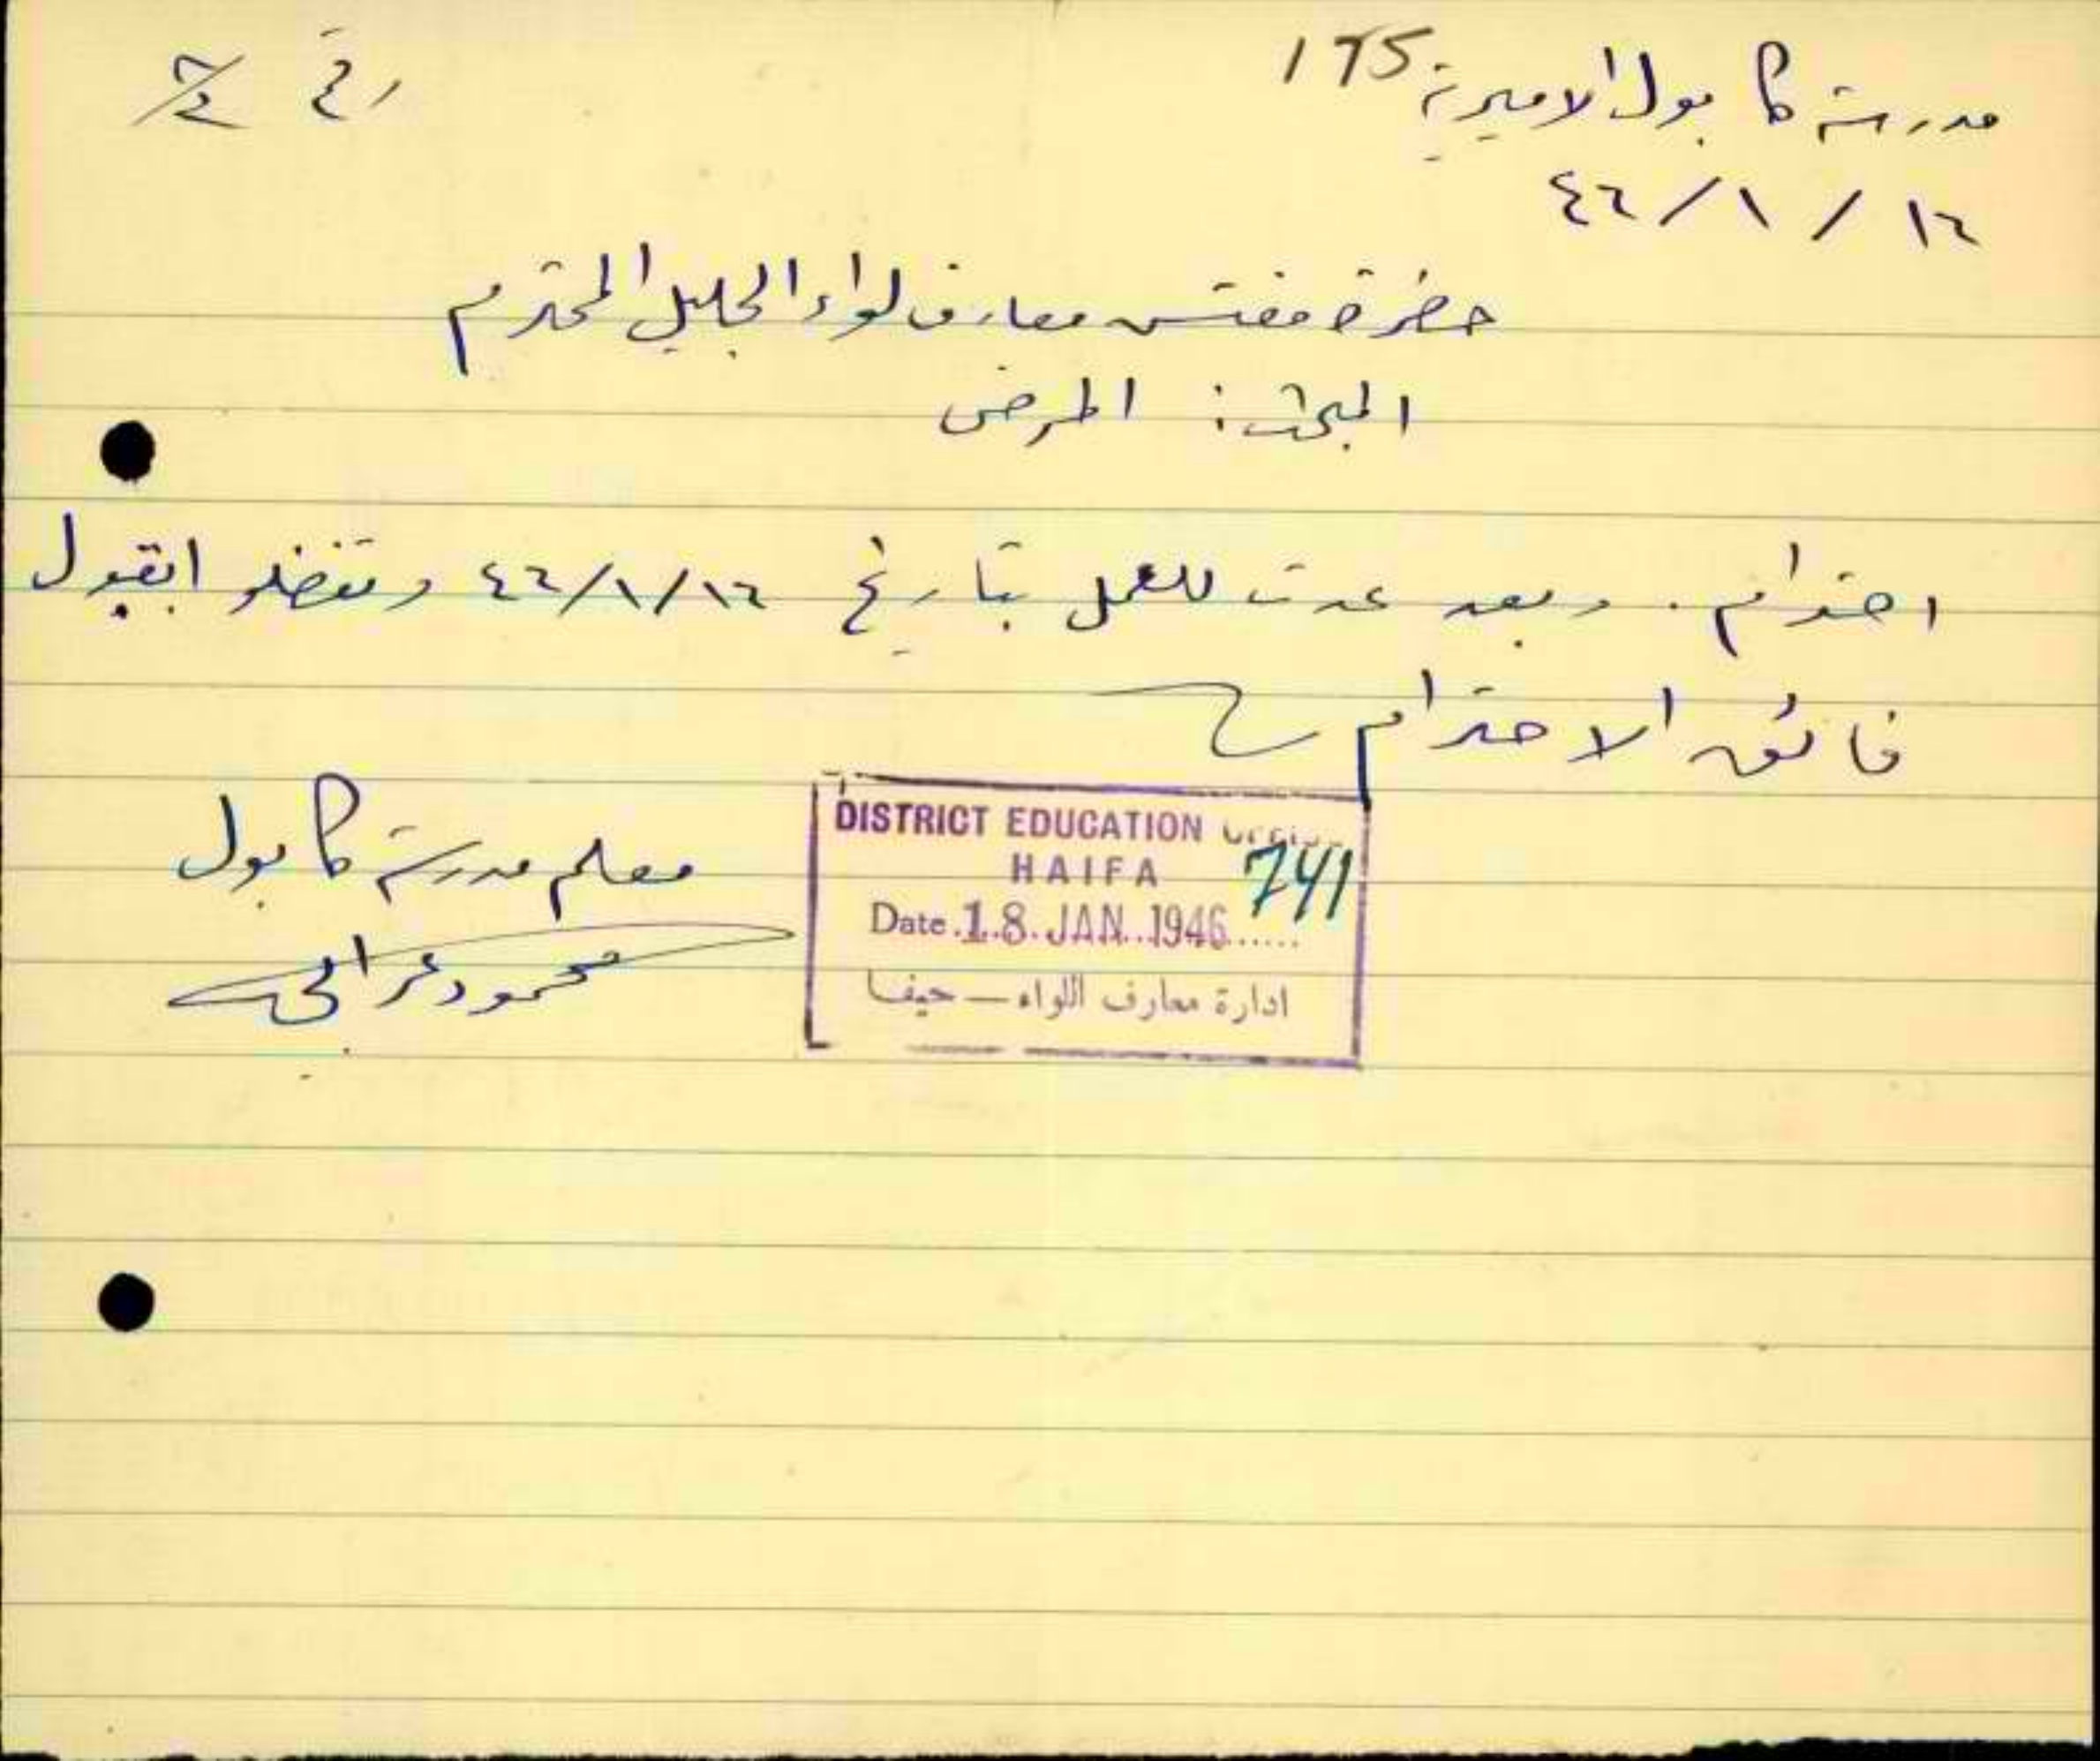 مدرسة كابول الاميرية 175
رقم ٤/٢
٤٦/١/١٦
حضرة مفتش معارف لواء الجليل المحترم
البحث: المرض
احترام. وبعد عدت للعمل بتاريخ ٤٦/١/١٦ وتفضلوا بقبول
فائق الاحترام
معلم مدرسة كابول
محمود
DISTRICT EDUCATION OFFICE
HAIFA 741
Date 18 JAN 1946
ادارة معارف اللواء — حيفا